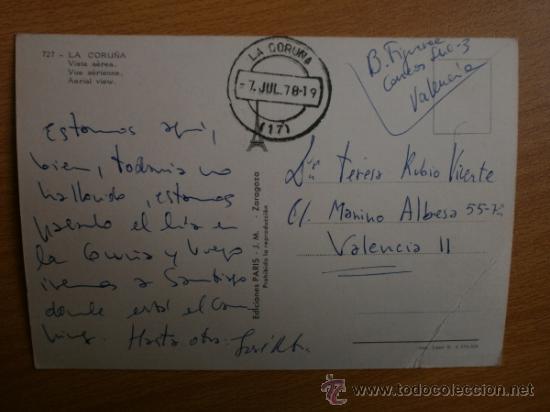 727 - LA CORUÑA
Vista aérea.
Vue aérienne.
Aerial view.
LA CORUÑA
-7. JUL. 78-19
(17)
B. Figueroa
Valencia
Estamos aquí,
bien, todavía no
ha llovido, estamos
pasando el día en
la Coruña y luego
iremos a Santiago
donde está el Cam
ping. Hasta otra.
Ediciones PARIS - J. M. - Zaragoza
Prohibida la reproducción
Teresa Rubio Vicente
C/. Marino Albesa 55-7ª
Valencia 11
todocoleccion
www.todocoleccion.net